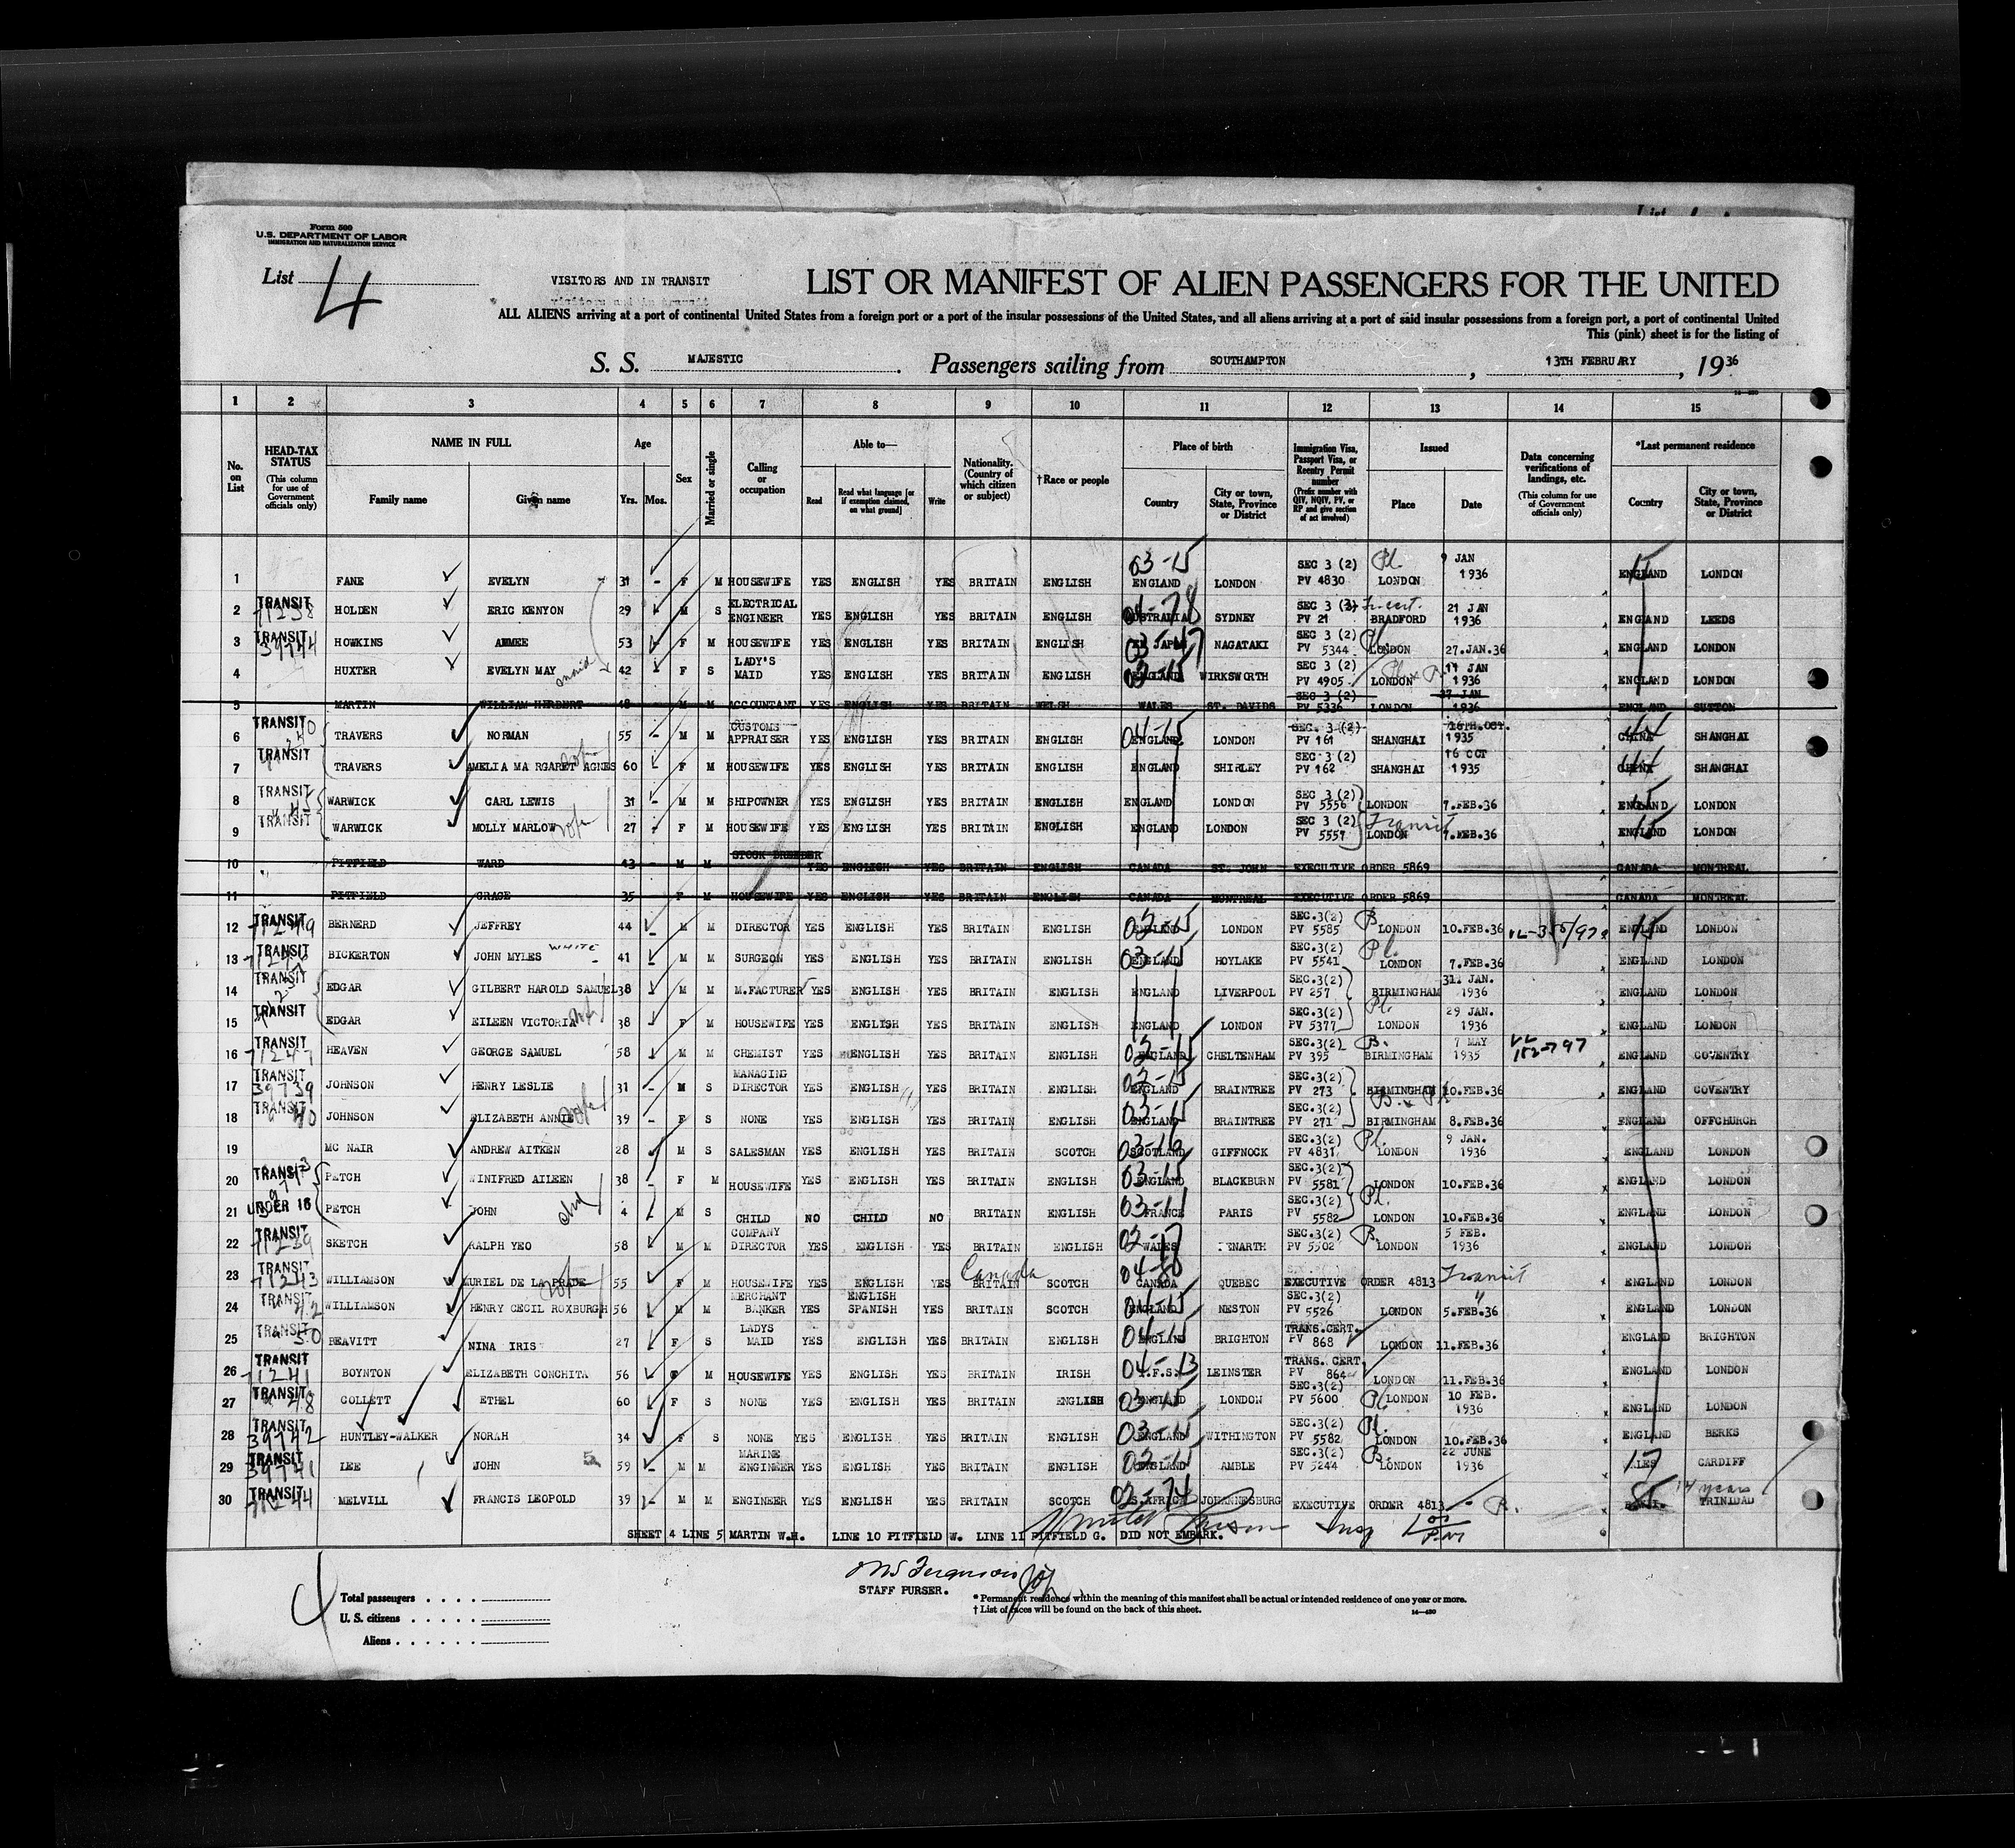 Form 500
U.S. DEPARTMENT OF LABOR
IMMIGRATION AND NATURALIZATION SERVICE
List 4
VISITORS AND IN TRANSIT
LIST OR MANIFEST OF ALIEN PASSENGERS FOR THE UNITED
ALL ALIENS arriving at a port of continental United States from a foreign port or a port of the insular possessions of the United States, and all aliens arriving at a port of said insular possessions from a foreign port, a port of continental United
This (pink) sheet is for the listing of
S. S. MAJESTIC. Passengers sailing from SOUTHAMPTON, 13TH FEBRUARY, 1936
1 2 3 4 5 6 7 8 9 10 11 12 13 14 15
No. on List
HEAD-TAX STATUS (This column for use of Government officials only)
NAME IN FULL Family name Given name
Age Yrs. Mos.
Sex
Married or single
Calling or occupation
Able to— Read Read what language [or if exemption claimed, on what ground] Write
Nationality. (Country of which citizen or subject)
†Race or people
Place of birth Country City or town, State, Province or District
Immigration Visa, Passport Visa, or Reentry Permit number (Prefix number with QIV, NQIV, PV, or RP and give section of act involved)
Issued Place Date
Data concerning verifications of landings, etc. (This column for use of Government officials only)
*Last permanent residence Country City or town, State, Province or District
1 FANE EVELYN 31 - F M HOUSEWIFE YES ENGLISH YES BRITAIN ENGLISH 03-15 ENGLAND LONDON SEC 3 (2) PV 4830 Pl. LONDON 9 JAN 1936 15 ENGLAND LONDON
2 TRANSIT 71238 HOLDEN ERIC KENYON 29 M S ELECTRICAL ENGINEER YES ENGLISH YES BRITAIN ENGLISH 04-78 AUSTRALIA SYDNEY SEC 3 (3) PV 21 Tr. cert. BRADFORD 21 JAN 1936 ENGLAND LEEDS
3 TRANSIT 39744 HOWKINS AMMEE 53 F M HOUSEWIFE YES ENGLISH YES BRITAIN ENGLISH JAPAN NAGATAKI SEC 3 (2) PV 5344 LONDON 27.JAN.36 ENGLAND LONDON
4 HUXTER EVELYN MAY maid 42 F S LADY'S MAID YES ENGLISH YES BRITAIN ENGLISH 03-15 ENGLAND WIRKSWORTH SEC 3 (2) PV 4905 LONDON 11 JAN 1936 ENGLAND LONDON
5 MARTIN WILLIAM HERBERT 48 M M ACCOUNTANT YES ENGLISH YES BRITAIN WELSH WALES ST. DAVIDS SEC 3 (2) PV 5336 LONDON 27 JAN 1936 ENGLAND SUTTON
6 TRANSIT TRAVERS NORMAN 55 - M M CUSTOMS APPRAISER YES ENGLISH YES BRITAIN ENGLISH 04-15 ENGLAND LONDON SEC. 3 (2) PV 161 SHANGHAI 16TH.OCT. 1935 CHINA SHANGHAI
7 TRANSIT TRAVERS AMELIA MARGARET AGNES 60 F M HOUSEWIFE YES ENGLISH YES BRITAIN ENGLISH ENGLAND SHIRLEY SEC 3 (2) PV 162 SHANGHAI 16 OCT 1935 CHINA SHANGHAI
8 TRANSIT WARWICK CARL LEWIS 31 - M M SHIPOWNER YES ENGLISH YES BRITAIN ENGLISH ENGLAND LONDON SEC 3 (2) PV 5556 LONDON 7.FEB.36 15 ENGLAND LONDON
9 TRANSIT WARWICK MOLLY MARLOW 27 - F M HOUSEWIFE YES ENGLISH YES BRITAIN ENGLISH ENGLAND LONDON SEC 3 (2) PV 5557 Transit LONDON 7.FEB.36 15 ENGLAND LONDON
10 PITFIELD WARD 43 - M M STOCK BREEDER YES ENGLISH YES BRITAIN ENGLISH CANADA ST. JOHN EXECUTIVE ORDER 5869 CANADA MONTREAL
11 PITFIELD GRACE 35 F M HOUSEWIFE YES ENGLISH YES BRITAIN ENGLISH CANADA MONTREAL EXECUTIVE ORDER 5869 CANADA MONTREAL
12 TRANSIT 71249 BERNERD JEFFREY 44 - M M DIRECTOR YES ENGLISH YES BRITAIN ENGLISH 02-15 ENGLAND LONDON SEC.3(2) PV 5585 B LONDON 10.FEB.36 15 ENGLAND LONDON
13 TRANSIT BICKERTON JOHN MYLES WHITE 41 - M M SURGEON YES ENGLISH YES BRITAIN ENGLISH 03-15 ENGLAND HOYLAKE SEC.3(2) PV 5541 Pl. LONDON 7.FEB.36 ENGLAND LONDON
14 TRANSIT EDGAR GILBERT HAROLD SAMUEL 38 M M M.FACTURER YES ENGLISH YES BRITAIN ENGLISH ENGLAND LIVERPOOL SEC.3(2) PV 257 BIRMINGHAM 31. JAN. 1936 ENGLAND LONDON
15 TRANSIT EDGAR EILEEN VICTORIA 38 F M HOUSEWIFE YES ENGLISH YES BRITAIN ENGLISH ENGLAND LONDON SEC.3(2) PV 5377 Pl. LONDON 29 JAN. 1936 ENGLAND LONDON
16 TRANSIT 71247 HEAVEN GEORGE SAMUEL 58 M M CHEMIST YES ENGLISH YES BRITAIN ENGLISH 02-15 ENGLAND CHELTENHAM SEC.3(2) PV 395 B. BIRMINGHAM 7 MAY 1935 ENGLAND COVENTRY
17 TRANSIT 39739 JOHNSON HENRY LESLIE 31 - M S MANAGING DIRECTOR YES ENGLISH YES BRITAIN ENGLISH 02-15 ENGLAND BRAINTREE SEC.3(2) PV 273 BIRMINGHAM 10.FEB.36 ENGLAND COVENTRY
18 TRANSIT 40 JOHNSON ELIZABETH ANNIE 39 - F S NONE YES ENGLISH YES BRITAIN ENGLISH 03-15 ENGLAND BRAINTREE SEC.3(2) PV 271 BIRMINGHAM 8.FEB.36 ENGLAND OFFCHURCH
19 MC NAIR ANDREW AITKEN 28 M S SALESMAN YES ENGLISH YES BRITAIN SCOTCH 03-16 SCOTLAND GIFFNOCK SEC.3(2) PV 4831 Pl. LONDON 9 JAN. 1936 ENGLAND LONDON
20 TRANSIT PETCH WINIFRED AILEEN 38 F M HOUSEWIFE YES ENGLISH YES BRITAIN ENGLISH 03-15 ENGLAND BLACKBURN SEC.3(2) PV 5581 LONDON 10.FEB.36 ENGLAND LONDON
21 UNDER 16 PETCH JOHN chd 4 M S CHILD NO CHILD NO BRITAIN ENGLISH 03-11 FRANCE PARIS SEC.3(2) PV 5582 Pl. LONDON 10.FEB.36 ENGLAND LONDON
22 TRANSIT 71239 SKETCH RALPH YEO 58 M M COMPANY DIRECTOR YES ENGLISH YES BRITAIN ENGLISH 02-17 WALES PENARTH SEC.3(2) PV 5502 B. LONDON 5 FEB. 1936 ENGLAND LONDON
23 TRANSIT 71243 WILLIAMSON MURIEL DE LA PRADE 55 F M HOUSEWIFE YES ENGLISH YES Canada BRITAIN SCOTCH CANADA QUEBEC EXECUTIVE ORDER 4813 Transit ENGLAND LONDON
24 TRANSIT 42 WILLIAMSON HENRY CECIL ROXBURGH 56 M M MERCHANT BANKER YES ENGLISH SPANISH YES BRITAIN SCOTCH 04-15 ENGLAND NESTON SEC.3(2) PV 5526 LONDON 5.FEB.36 " ENGLAND LONDON
25 TRANSIT 50 BEAVITT NINA IRIS 27 F S LADYS MAID YES ENGLISH YES BRITAIN ENGLISH 04-15 ENGLAND BRIGHTON TRANS.CERT. PV 868 LONDON 11.FEB.36 ENGLAND BRIGHTON
26 TRANSIT 71241 BOYNTON ELIZABETH CONCHITA 56 F M HOUSEWIFE YES ENGLISH YES BRITAIN IRISH 04-13 I.F.S. LEINSTER TRANS. CERT PV 864 LONDON 11.FEB.36 ENGLAND LONDON
27 TRANSIT 48 COLLETT ETHEL 60 F S NONE YES ENGLISH YES BRITAIN ENGLISH 03-15 ENGLAND LONDON SEC.3(2) PV 5600 Pl. LONDON 10 FEB. 1936 ENGLAND LONDON
28 TRANSIT 39742 HUNTLEY-WALKER NORAH 34 F S NONE YES ENGLISH YES BRITAIN ENGLISH 03-15 ENGLAND WITHINGTON SEC.3(2) PV 5582 Pl. LONDON 10.FEB.36 ENGLAND BERKS
29 TRANSIT 39741 LEE JOHN 59 - M M MARINE ENGINEER YES ENGLISH YES BRITAIN ENGLISH 02-15 ENGLAND AMBLE SEC.3(2) PV 5244 B. LONDON 22 JUNE 1936 17 WALES CARDIFF
30 TRANSIT 71244 MELVILL FRANCIS LEOPOLD 39 - M M ENGINEER YES ENGLISH YES BRITAIN SCOTCH 02-74 S.AFRICA JOHANNESBURG EXECUTIVE ORDER 4813 - B. 14 years TRINIDAD
SHEET 4 LINE 5 MARTIN W.H. LINE 10 PITFIELD W. LINE 11 PITFIELD G. DID NOT EMBARK.
4
STAFF PURSER.
Total passengers
U. S. citizens
Aliens
* Permanent residence within the meaning of this manifest shall be actual or intended residence of one year or more.
† List of races will be found on the back of this sheet.
14—430